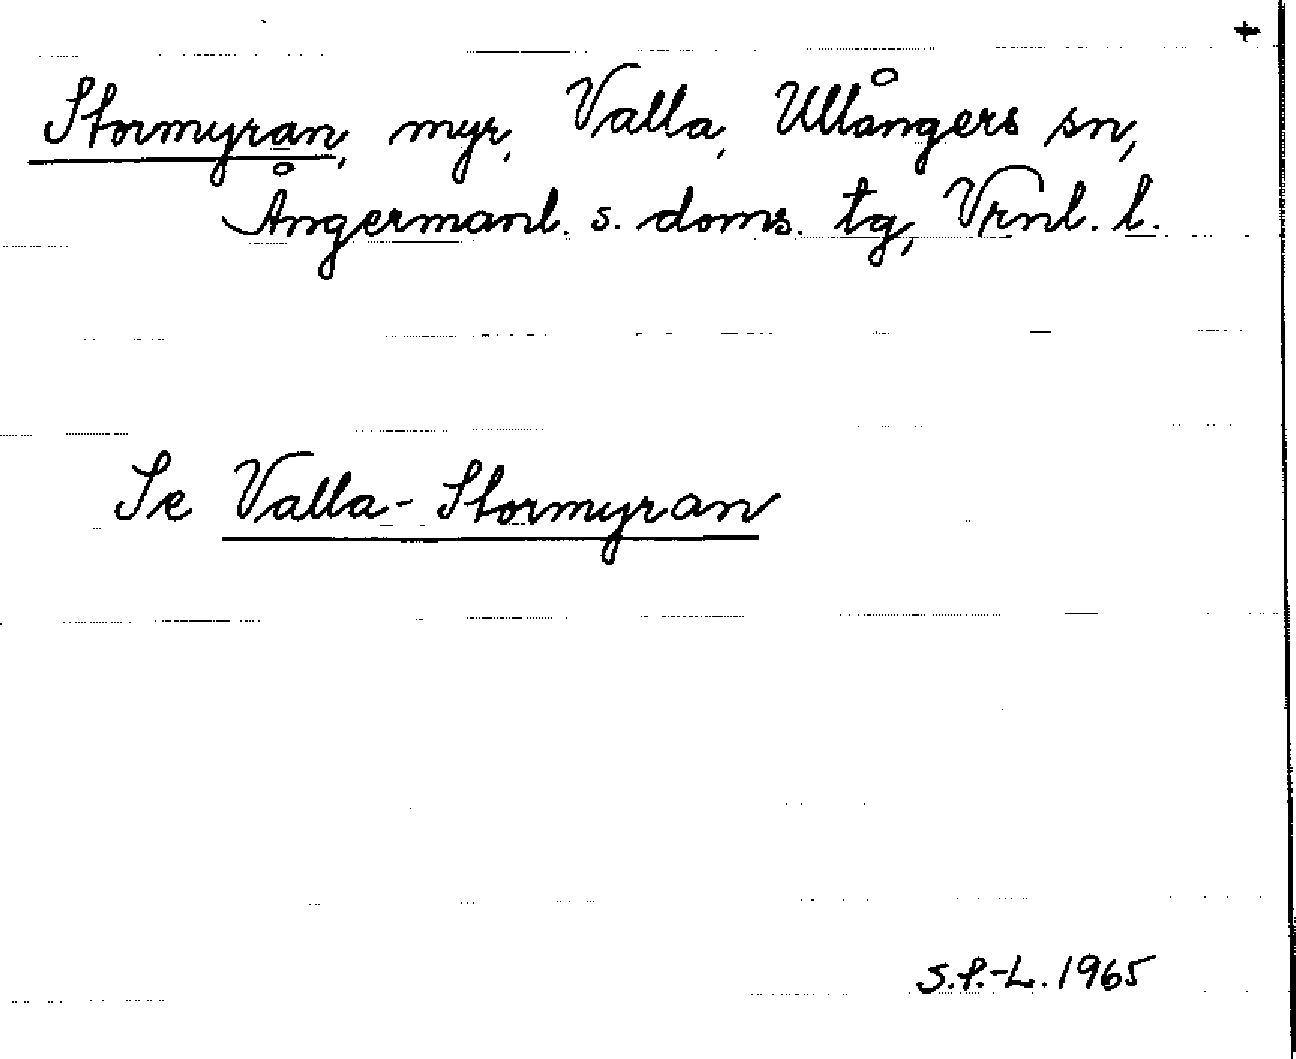 +
Stormyran, myr, Valla, Ullångers sn,
Ångermanl. s. doms. tg, Vrnl. l.
Se Valla-Stormyran
S.P.-L. 1965